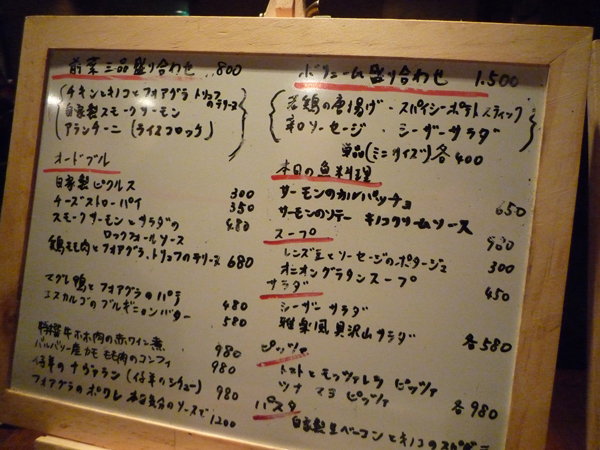 前菜三品盛り合わせ 800
チキンとキノコとフォアグラ、トリュフのテリーヌ
自家製スモークサーモン
アランチーニ (ライスコロッケ)
オードブル
自家製ピクルス 300
チーズストローパイ 350
スモークサーモンとサラダの
ロックフォールソース 480
鶏もも肉とフォアグラ、トリュフのテリーヌ 680
マグレ鴨とフォアグラのパテ 480
エスカルゴのブルギニョンバター 580
牛ホホ肉の赤ワイン煮 980
バルバリー産かももも肉のコンフィ 980
仔羊のナヴァラン (仔羊のシチュー) 980
フォアグラのポワレ 本日気分のソースで 1200
ボリューム盛り合わせ 1.500
若鶏の唐揚げ・スパイシーポテトスティック
辛口ソーセージ・シーザーサラダ
単品(ミニサイズ)各400
本日の魚料理
サーモンのカルパッチョ 650
サーモンのソテー キノコクリームソース 980
スープ
レンズ豆とソーセージのポタージュ 300
オニオングラタンスープ 450
サラダ
シーザーサラダ
雅楽風 具沢山サラダ 各580
ピッツァ
トマトとモッツァレラ ピッツァ
ツナ マヨ ピッツァ 各980
パスタ
自家製生ベーコンとキノコの